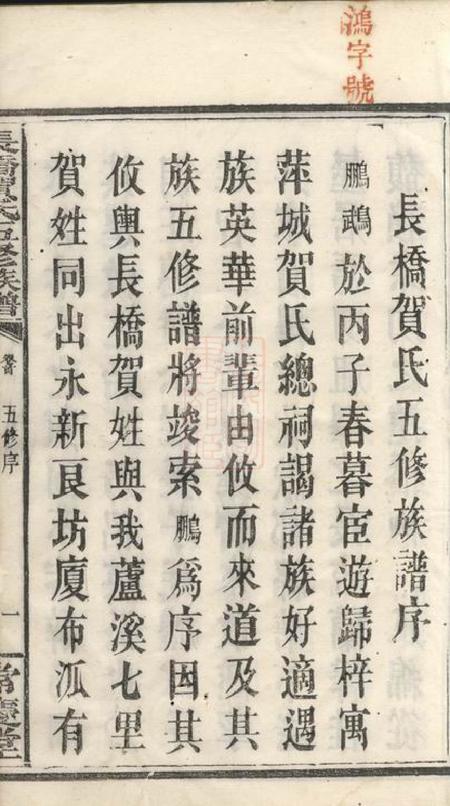 鴻字號
長橋賀氏五修族譜序
鵬鵡於丙子春暮宦遊歸梓寓
萍城賀氏總祠謁諸族好適遇
族英華前輩由攸而來道及其
族五修譜將竣索鵬為序因其
攸輿長橋賀姓與我蘆溪七里
賀姓同出永新良坊廈布派有
長橋賀氏五修族譜
五修序
一
常慶堂